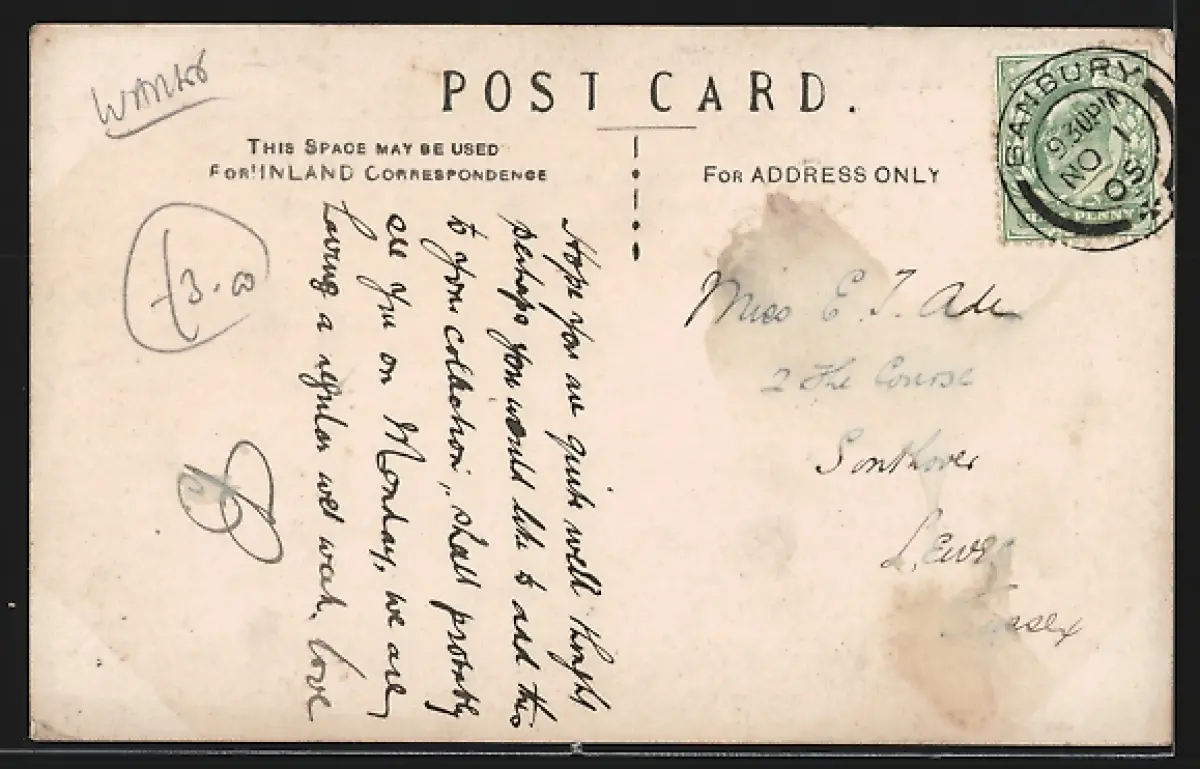 POST CARD.
THIS SPACE MAY BE USED
FOR INLAND CORRESPONDENCE
FOR ADDRESS ONLY
BANBURY
9.30PM
NO 1
05
HALF PENNY
Hope you are quite well thought
perhaps you would like to add this
to your collection, shall probably
see you on Monday, we are
having a regular wet week, love
Miss E. J. Ade
2 The Course
Southover
Lewes
Sussex